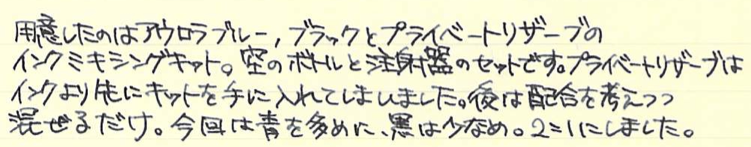 用意したのはアウロラブルー,ブラックとプライベートリザーブの
インクミキシングキット。空のボトルと注射器のセットです。プライベートリザーブは
インクより先にキットを手に入れてしまいました。後は配合を考えつつ
混ぜるだけ。今回は青を多めに、黒は少なめ。2:1にしました。